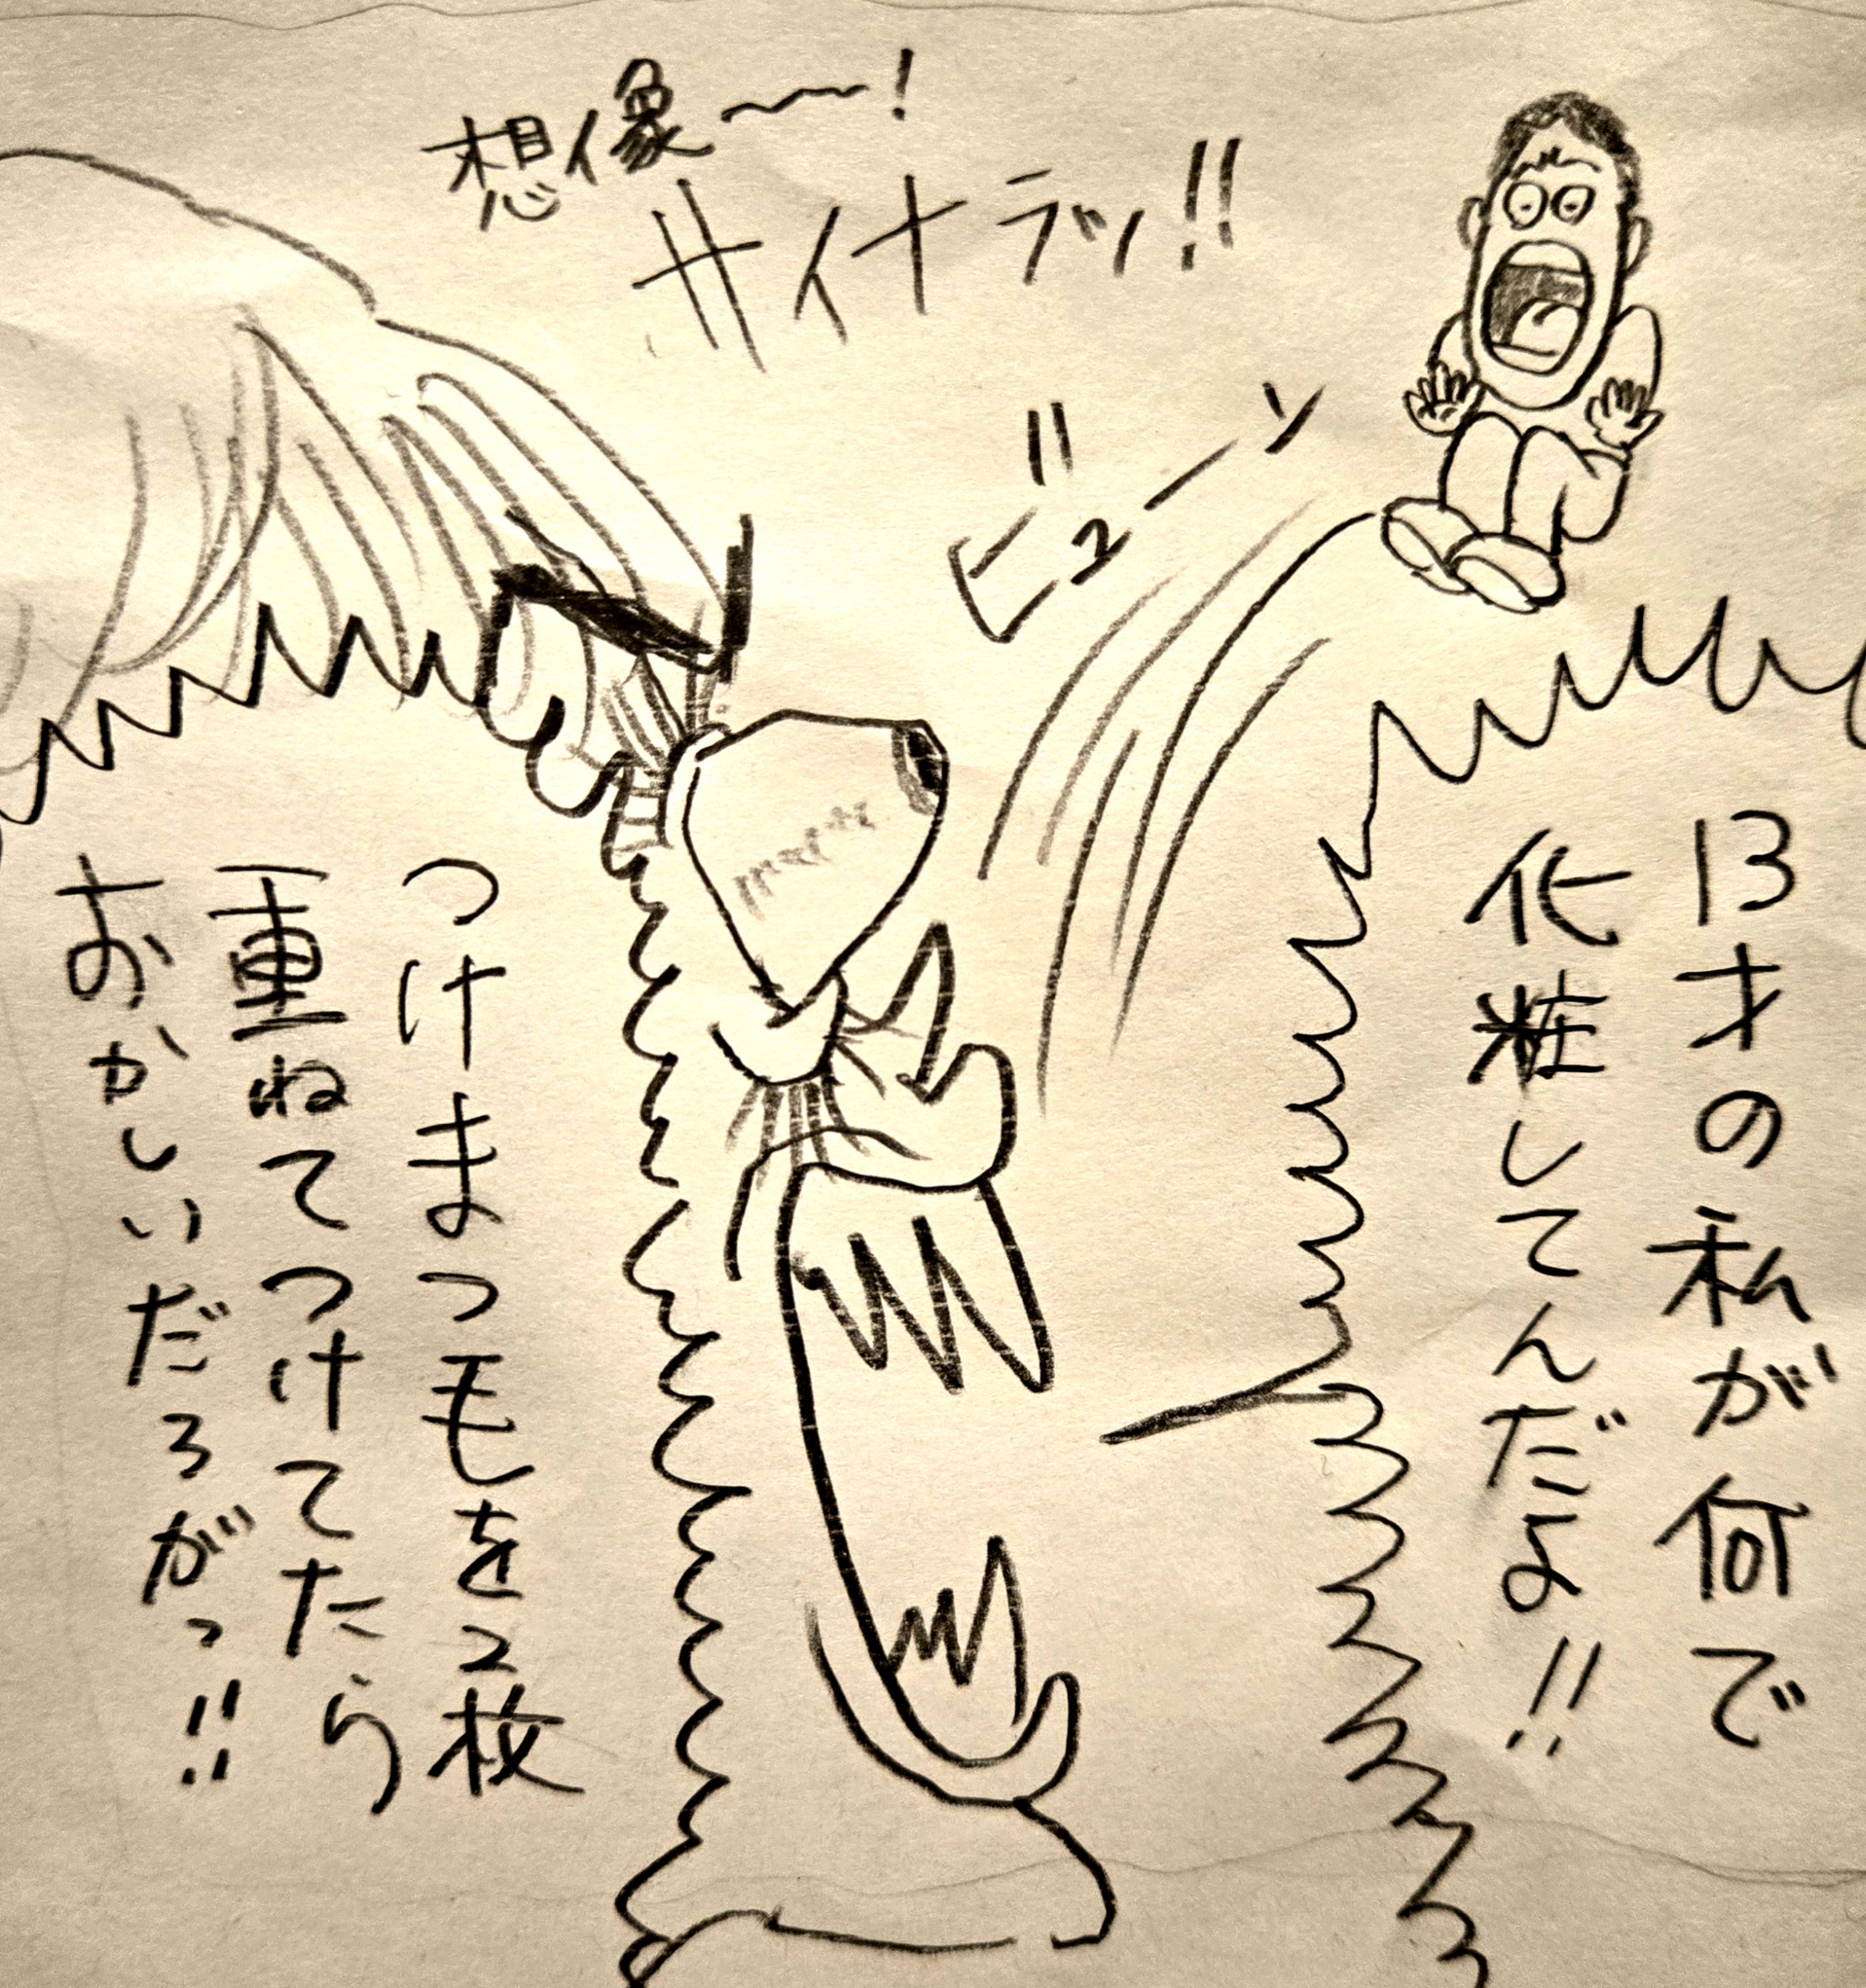 想像〜〜!
サイナラッ!!
ビューン
13才の私が何で
化粧してんだよ!!
つけまつ毛を2枚
重ねてつけてたら
おかしいだろがっ!!